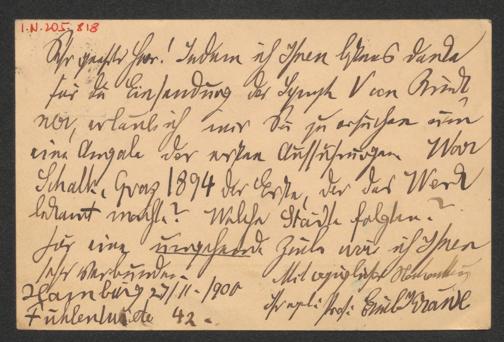 I.N. 205.818
Sehr geehrter Herr! Indem ich Ihnen bestens danke
für die Einsendung der Symph. V von Bruck
ner, erlaube ich mir Sie zu ersuchen um
eine Angabe der ersten Aufführungen. War
Schalk, Graz 1894 der Erste, der das Werk
bekannt machte? Welche Städte folgten?
Für eine umgehende Zeile wär ich Ihnen
sehr verbunden.
Mit vorzüglicher Hochachtung
Hamburg, 27/11-1900
Ihr ergb. Prof. Emil Krause
Fuhlentwiete 42.